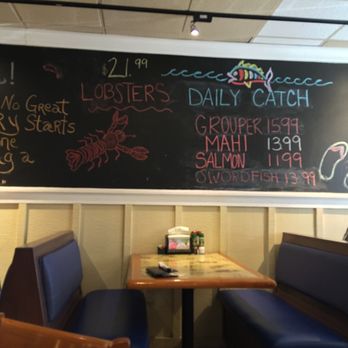 L!
No Great
RY Starts
ne
g a
21.99
LOBSTERS
DAILY CATCH
GROUPER 1599
MAHI 1399
SALMON 1199
SWORDFISH 13.99